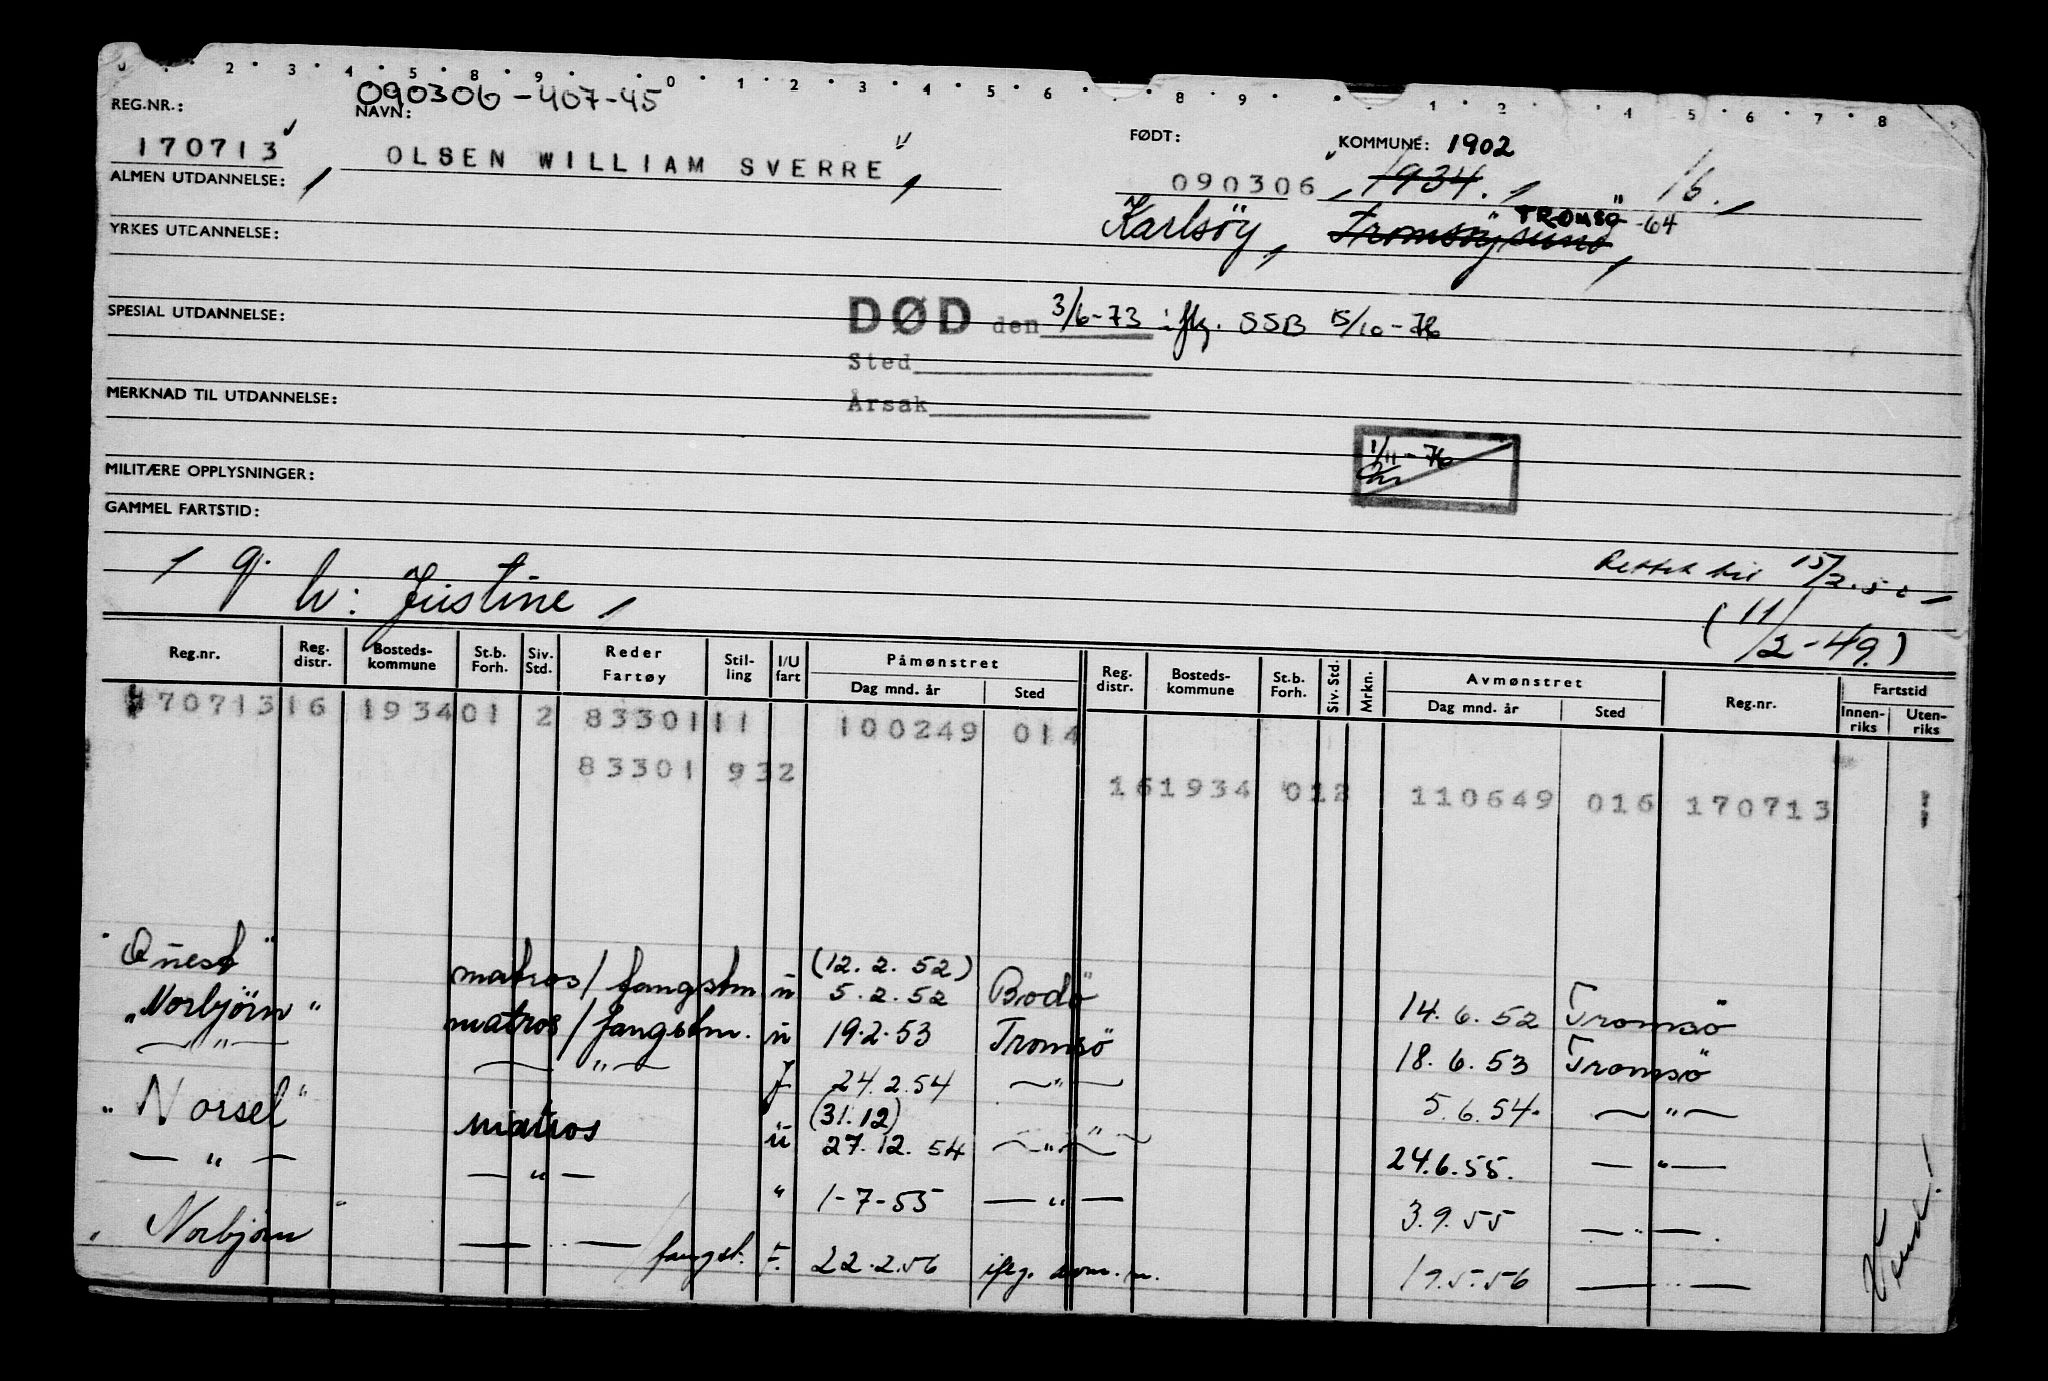 0 2 3 4 5 8 9 0 1 2 3 4 5 6 8 9 1 2 4 5 6 7 8 9
REG.NR.: 090306-407-45
NAVN: FØDT: KOMMUNE: 1902
170713 OLSEN WILLIAM SVERRE 090306 1934. 16.
ALMEN UTDANNELSE: Karlsöy, Tromsöysund TROMSÖ -64
YRKES UTDANNELSE:
SPESIAL UTDANNELSE: DØD den 3/6-73 iflg. SSB 15/10-76
Sted
MERKNAD TIL UTDANNELSE: Årsak
1/11-76
MILITÆRE OPPLYSNINGER:
GAMMEL FARTSTID:
g. Rettet til 15/2.50
h: Justine (11/2-49.)
Reg.nr. Reg. distr. Bosteds-kommune St.b. Forh. Siv. Std. Reder Fartøy Stil-ling I/U fart Påmønstret Dag mnd. år Sted Reg. distr. Bosteds-kommune St.b. Forh. Siv. Std. Mrkn. Avmønstret Dag mnd. år Sted Reg.nr. Fartstid Innen-riks Uten-riks
170713 16 1934 01 2 83301 11 100249 014
83301 932 161934 012 110649 016 170713
"Quest" matros/fangstm ü (12.2.52) 5.2.52 Bodö 14.6.52 Tromsö
"Norbjörn" matros/fangstm. ü 19.2.53 Tromsö 18.6.53 Tromsö
— " — — " — F 24.2.54 — " — 5.6.54. — " —
"Norsel" matros ü (31.12) 27.12.54 — " — 24.6.55. — " —
— " — — " — " 1-7-55 — " — 3.9.55 — " —.
"Norbjörn" — " — /fangst. F. 22.2.56 iflg. avm.m. 19.5.56 — " —
Vend!